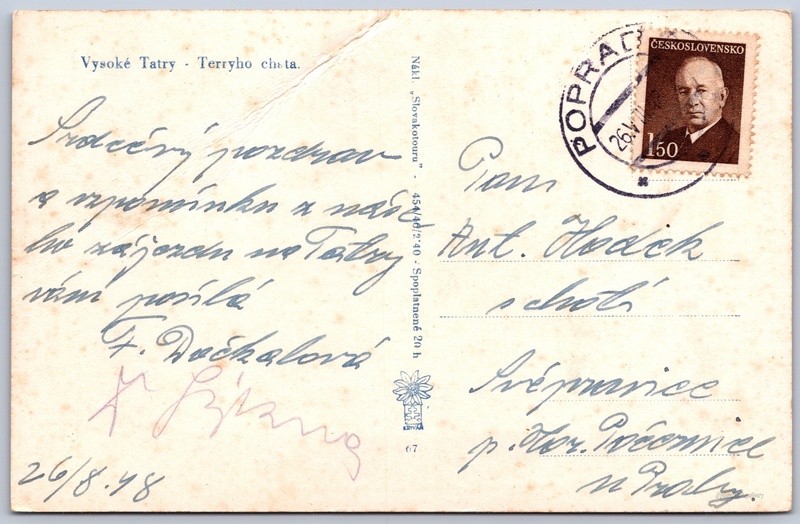 Vysoké Tatry - Terryho chata.
Srdečný pozdrav
a vzpomínku z naše
ho zájezdu na Tatry
vám posílá
F. Dočkalová
26/8.48
Nákl. „Slovakotouru" - 454/46/2'40 - Spoplatnené 20 h
67
POPRAD
26.V
ČESKOSLOVENSKO
1.50
Pan
Ant. Hodek
s chotí
Svépravice
p. Hor. Počernice
u Prahy.